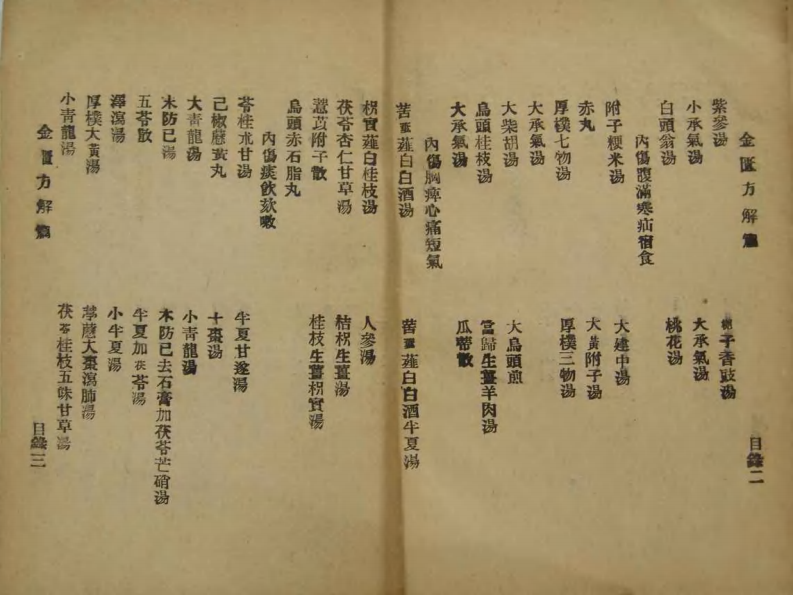 金匱方解篇 目錄二
紫參湯 梔子香豉湯
小承氣湯 大承氣湯
白頭翁湯 桃花湯
內傷腹滿寒疝宿食
附子粳米湯 大建中湯
赤丸 大黃附子湯
厚樸七物湯 厚樸三物湯
大承氣湯
大柴胡湯 大烏頭煎
烏頭桂枝湯 當歸生薑羊肉湯
大承氣湯 瓜蒂散
內傷胸痺心痛短氣
苦蔞薤白白酒湯 苦蔞薤白白酒半夏湯
枳實薤白桂枝湯 人參湯
茯苓杏仁甘草湯 桔枳生薑湯
薏苡附子散 桂枝生薑枳實湯
烏頭赤石脂丸
內傷痰飲欬嗽
苓桂朮甘湯 半夏甘遂湯
己椒藶黃丸 十棗湯
大青龍湯 小青龍湯
木防己湯 木防己去石膏加茯苓芒硝湯
五苓散 半夏加茯苓湯
澤瀉湯 小半夏湯
厚樸大黃湯 葶藶大棗瀉肺湯
小青龍湯 茯苓桂枝五味甘草湯
金匱方解篇 目錄三